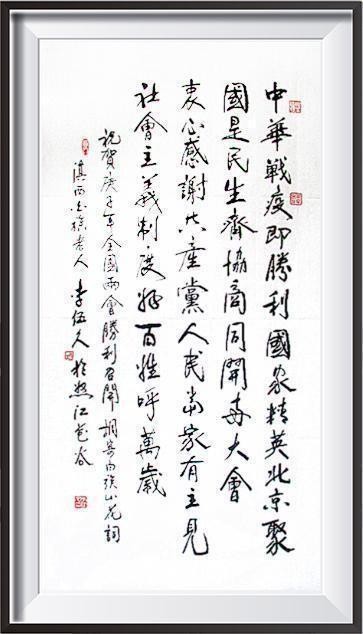 中華戰疫即勝利國家精英北京聚
國是民生齊協商同開大會
衷心感謝共產黨人民當家有主見
社會主義制度好百姓呼萬歲
祝賀庚子年全國兩會勝利召開調寄白族山花詞
滇西白族老人李伍久於怒江谷